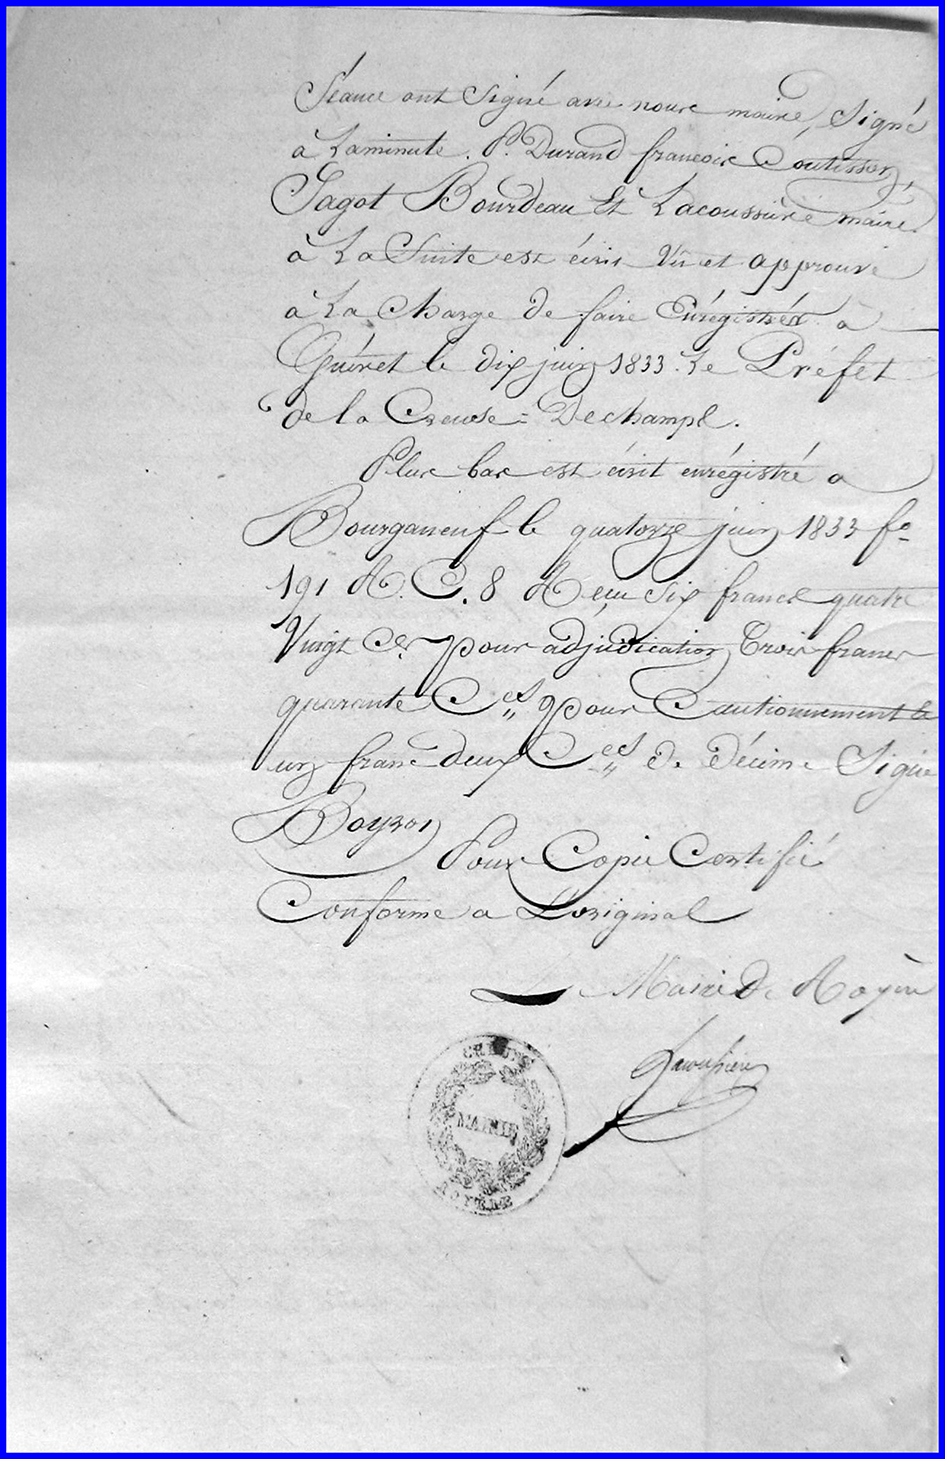 Séance ont Signé avec nous maire, Signé
a Laminute. P. Durand francois Coutisson,
Jagot Bourdeau Et Lacoussiere maire.
à La Suite est écrit Vu et approuvé
a La Charge de faire Enrégistrer a
Guéret le dix juin 1833. Le Préfet
de la Creuse = Dechamps.
Plus bas est écrit enrégistré a
Bourganeuf le quatorze juin 1833 fo
191 R. C. 8 Reçu Six francs quatre
Vingt Ces. pour adjudication Trois francs
quarante Ces pour Cautionnement &
un franc deux Ces de décime Signé
Boyron
Pour Copie Certifié
Conforme a L'original
Le Maire De Royère
Lacoussiere
CREUSE
MAIRIE
ROYERE